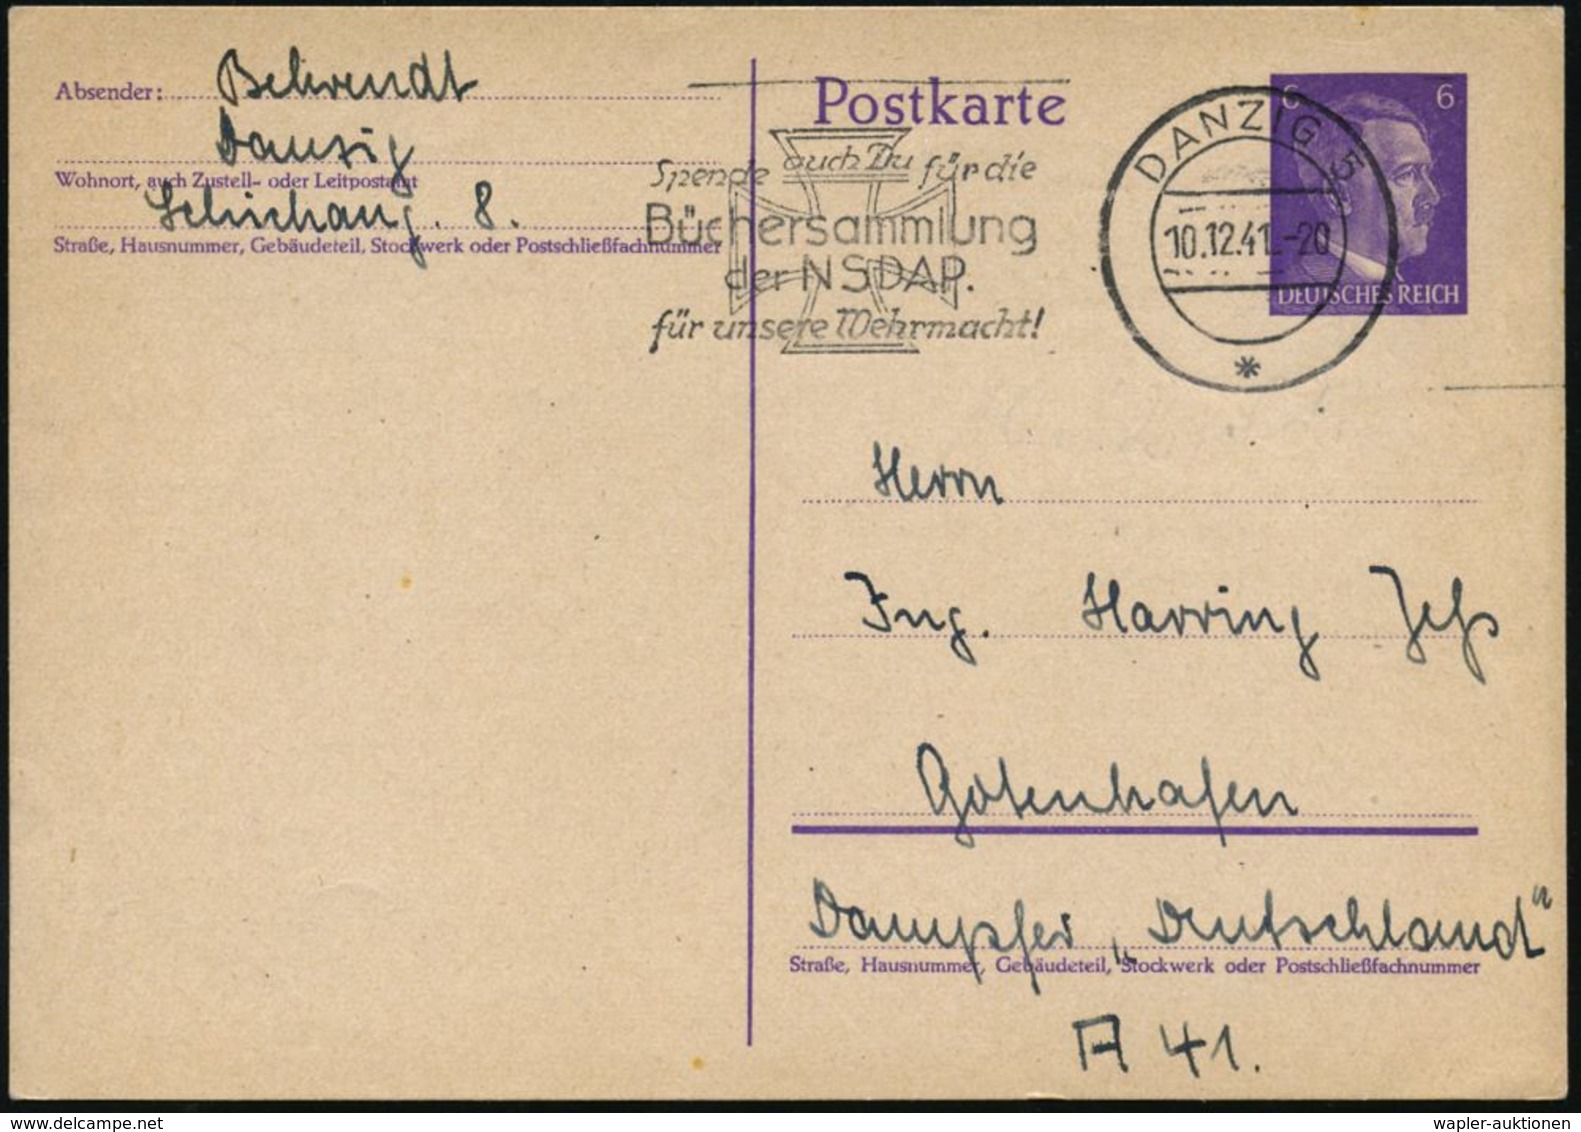 Absender: Behrendt
Danzig
Wohnort, auch Zustell- oder Leitpostamt
Schichaug. 8.
Straße, Hausnummer, Gebäudeteil, Stockwerk oder Postschließfachnummer
Postkarte
Spende auch Du für die
Büchersammlung
der NSDAP.
für unsere Wehrmacht!
DANZIG 5
10.12.41.-20
*
6 6
DEUTSCHES REICH
Herrn
Ing. Harring
Gotenhafen
Dampfer „Deutschland"
Straße, Hausnummer, Gebäudeteil, Stockwerk oder Postschließfachnummer
A 41.
wapler-auktionen